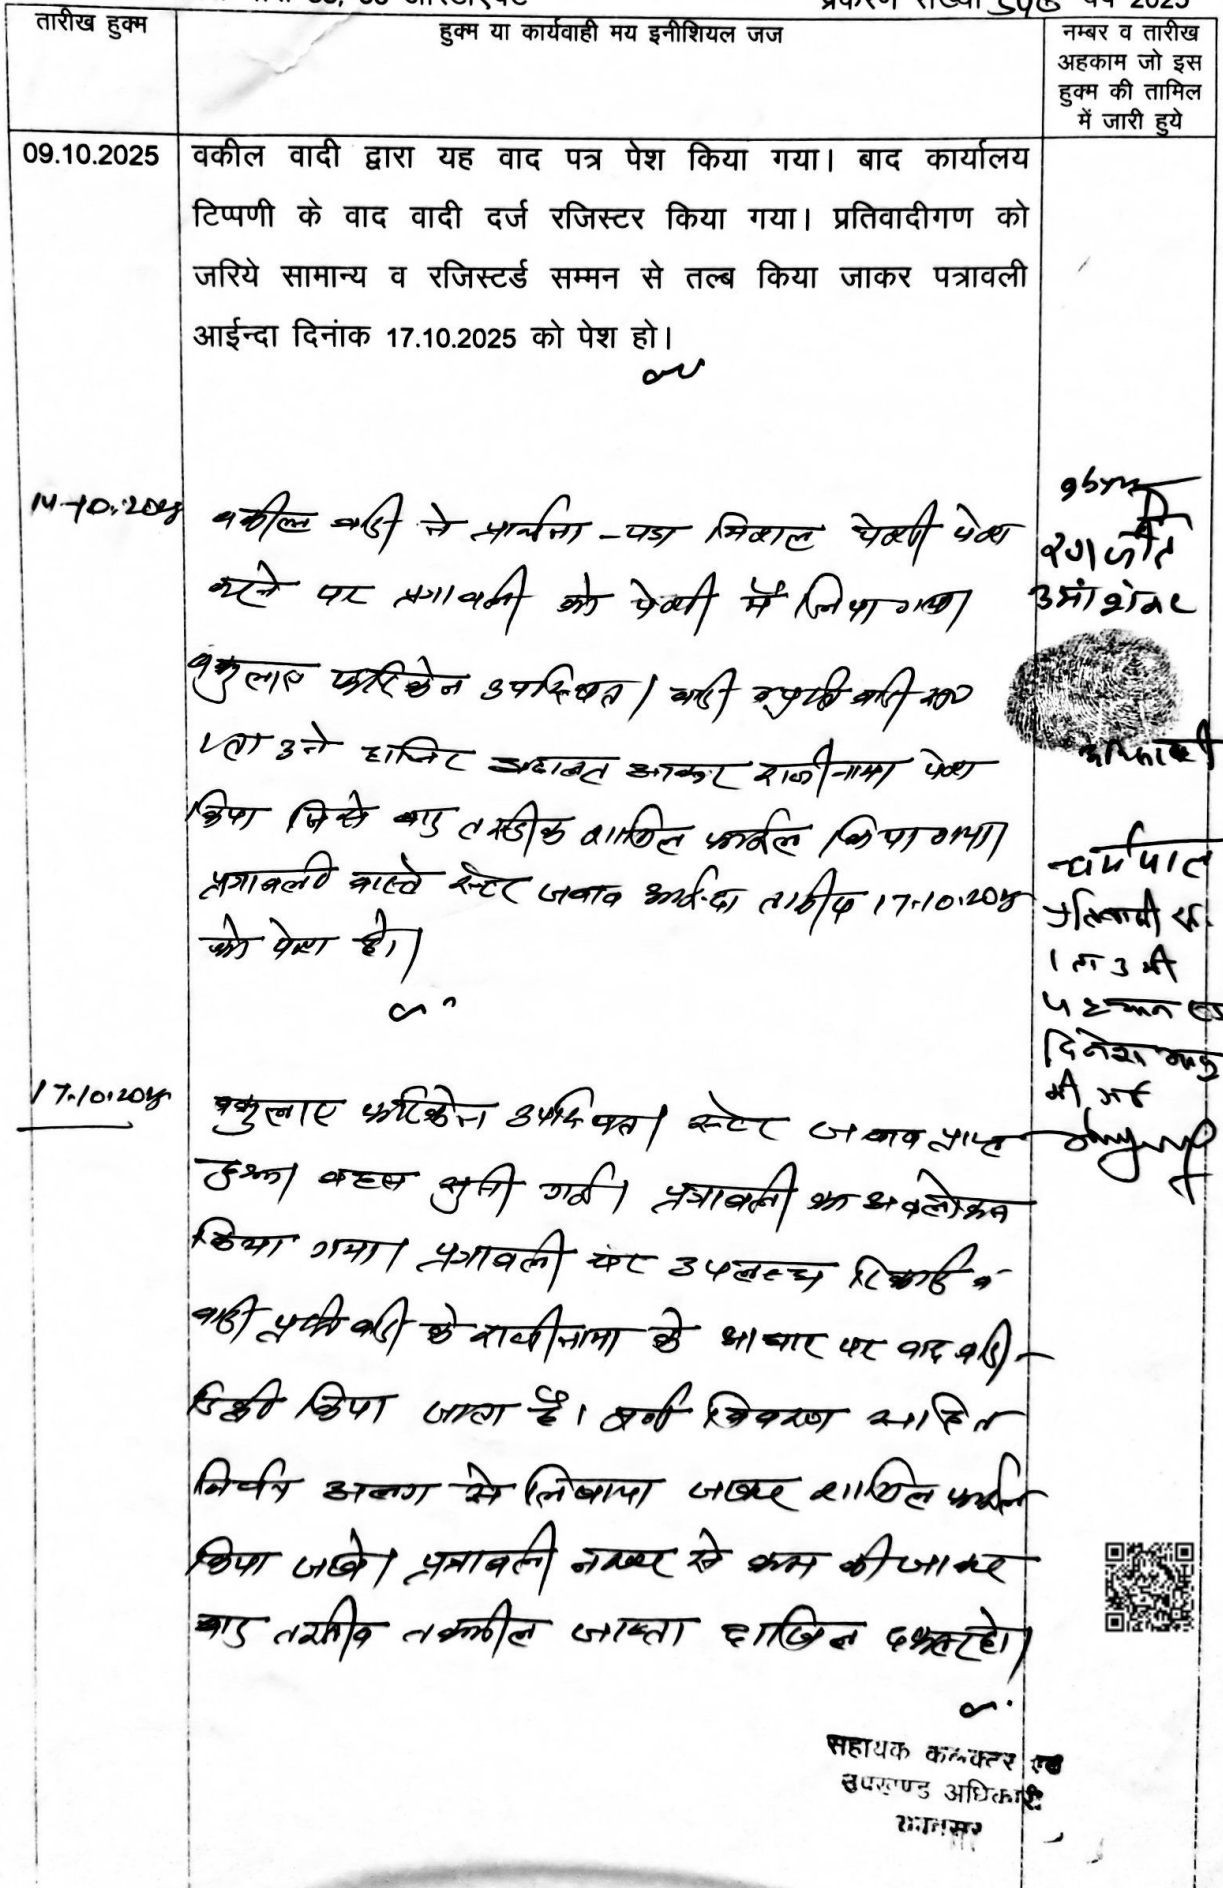 प्रकरण संख्या वर्ष 2025
तारीख हुक्म
हुक्म या कार्यवाही मय इनीशियल जज
नम्बर व तारीख
अहकाम जो इस
हुक्म की तामिल
में जारी हुये
09.10.2025
वकील वादी द्वारा यह वाद पत्र पेश किया गया। बाद कार्यालय
टिप्पणी के वाद वादी दर्ज रजिस्टर किया गया। प्रतिवादीगण को
जरिये सामान्य व रजिस्टर्ड सम्मन से तल्ब किया जाकर पत्रावली
आईन्दा दिनांक 17.10.2025 को पेश हो।
14-10.2025
वकील वादी ने प्रार्थना-पत्र मिशल पेशी पेश
करने पर पत्रावली को पेशी में लिया गया
वकुलाए फरिकेन उपस्थित। वादी प्रतिवादी
1 ता 3 ने हाजिर अदालत आकर राजीनामा पेश
किया जिसे बाद तस्दीक शामिल फाईल किया गया।
पत्रावली वास्ते स्टेट जवाब आईन्दा तारीख 17.10.2025
को पेश हो।
उमाशंकर
धर्मपाल
प्रतिवादी सं.
1 ता 3 की
पहचान
दिनेश
की गई
17.10.2025
वकुलाए फरिकेन उपस्थित। स्टेट जवाब प्राप्त
हुआ। बहस सुनी गई। पत्रावली का अवलोकन
किया गया। पत्रावली पर उपलब्ध रिकार्ड व
वादी प्रतिवादी के राजीनामा के आधार पर वाद वादी
डिक्री किया जाता है। विवरण सहित
निर्णय अलग से लिखाया जाकर शामिल फाईल
किया जावे। पत्रावली नम्बर से कम की जाकर
बाद तरतीब तकमील जाब्ता दाखिल दफ्तर हो।
सहायक कलक्टर एवं
उपखण्ड अधिकारी